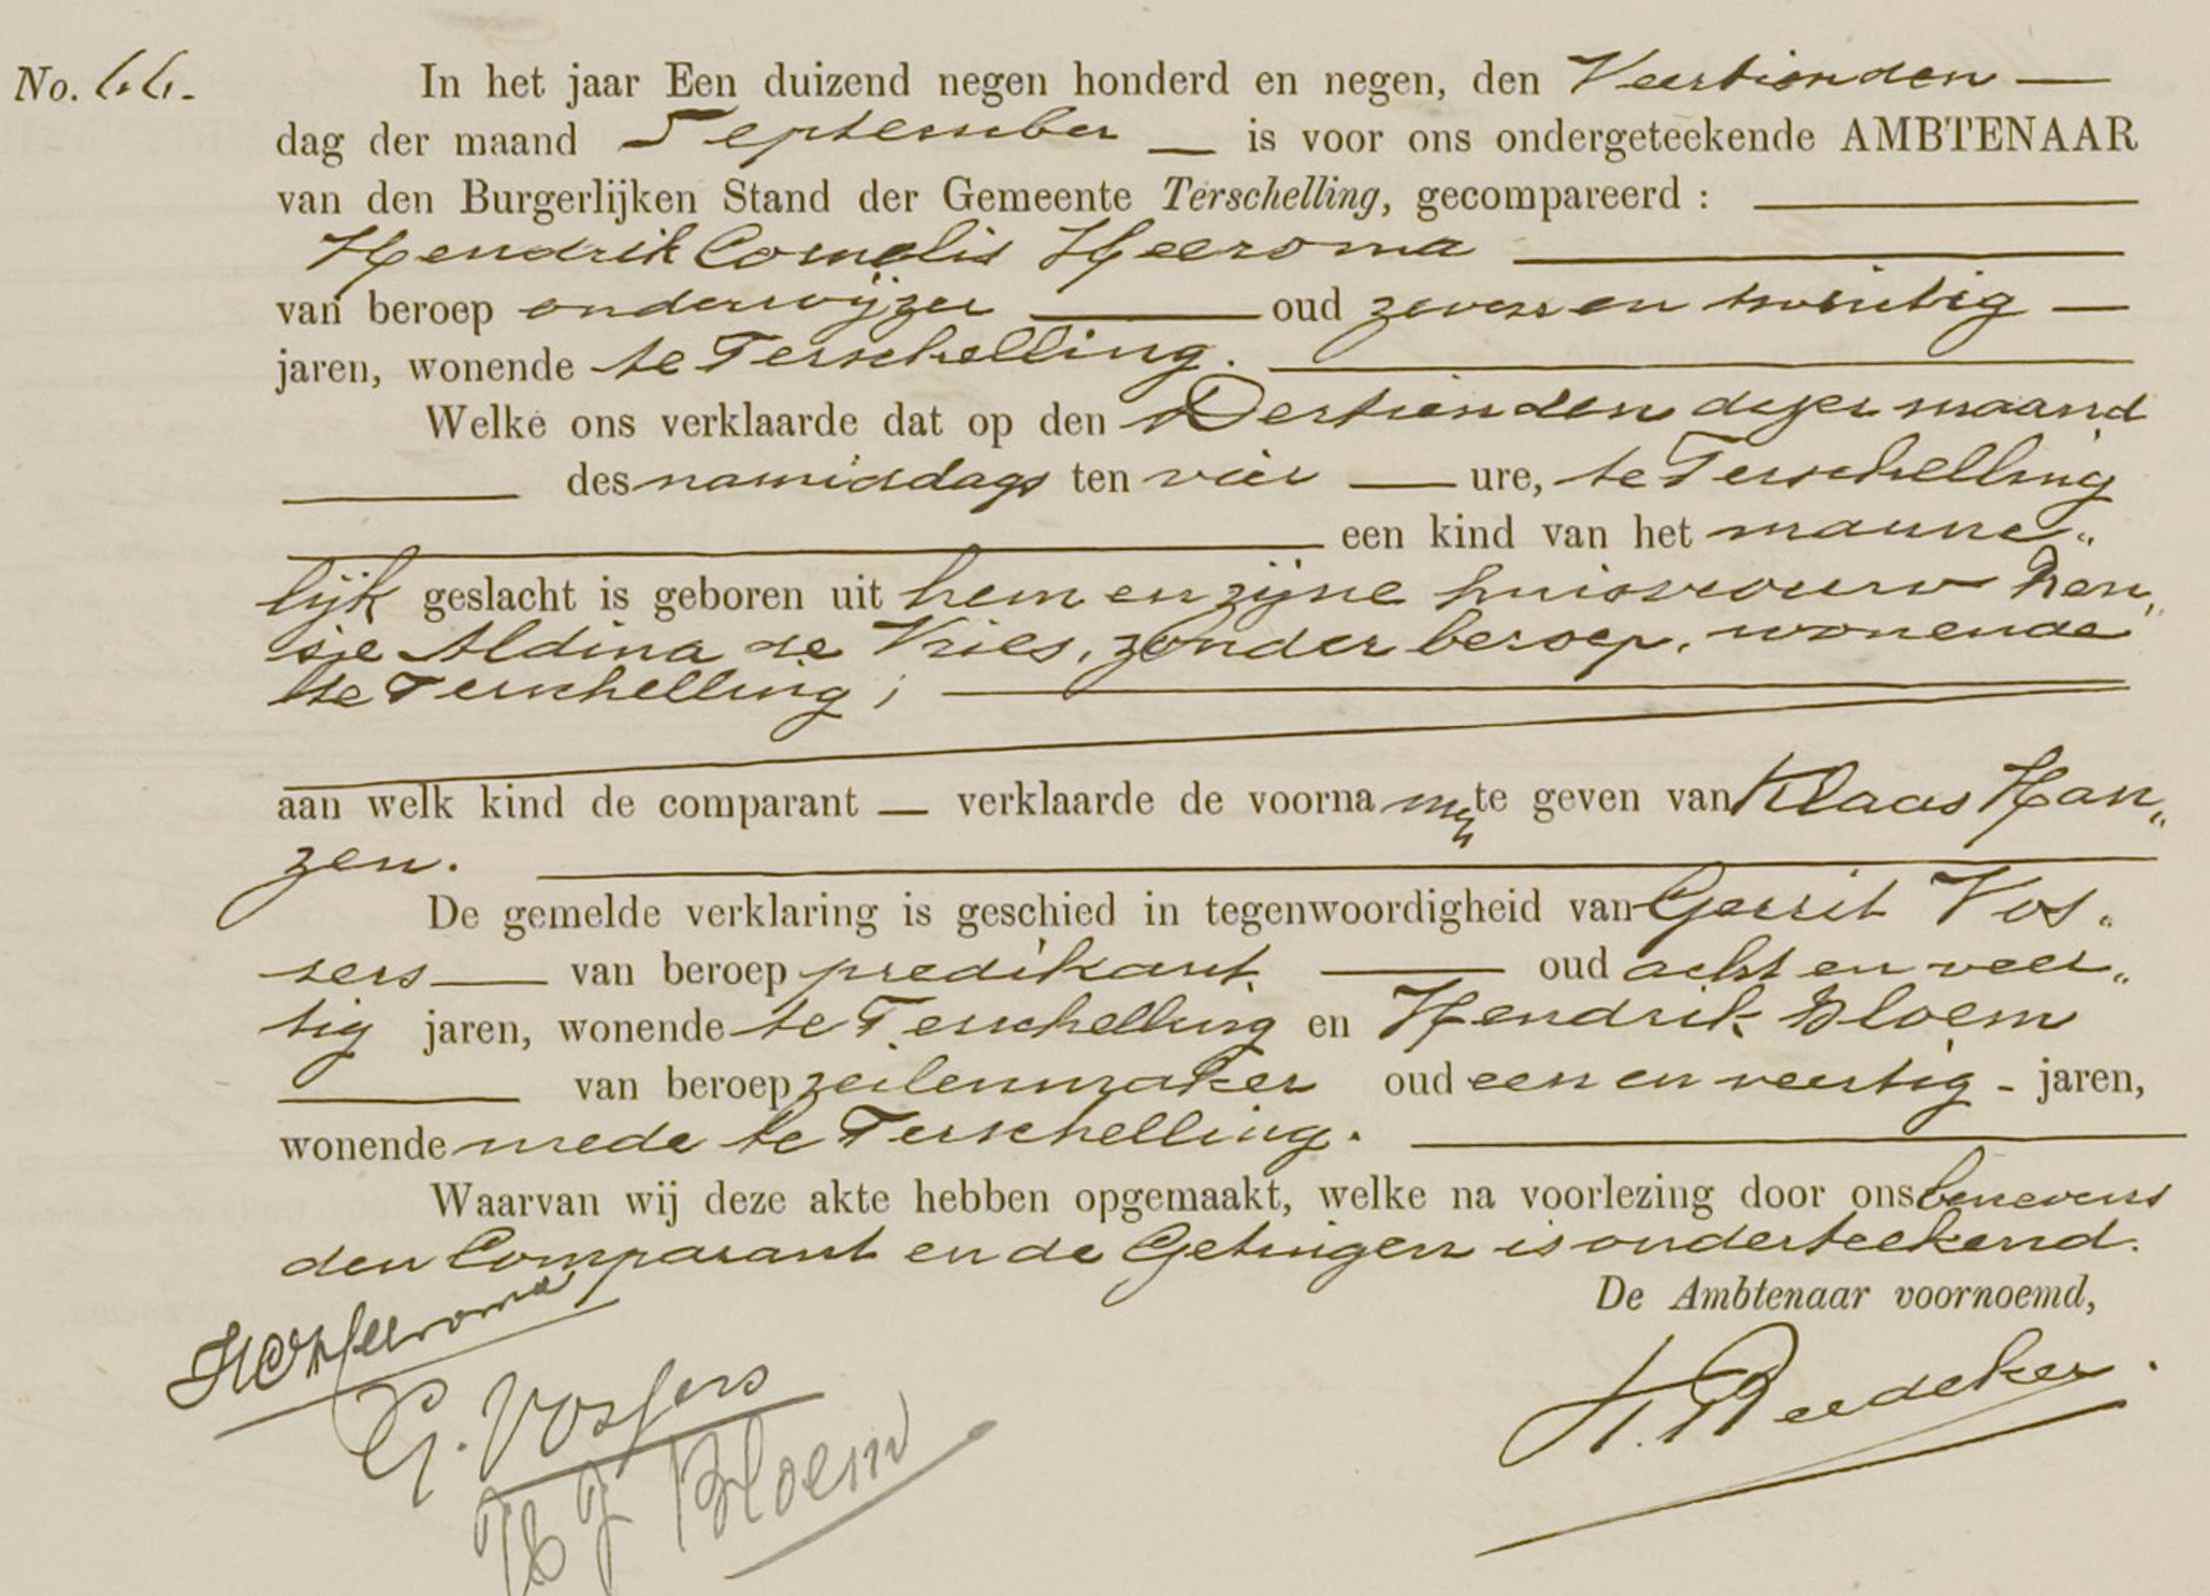 No. 44.
In het jaar Een duizend negen honderd en negen, den Veertienden —
dag der maand September — is voor ons ondergeteekende AMBTENAAR
van den Burgerlijken Stand der Gemeente Terschelling, gecompareerd :
Hendrik Cornelis Heeroma
van beroep onderwijzer oud zeven en twintig —
jaren, wonende te Terschelling.
Welke ons verklaarde dat op den Dertienden dezer maand
des namiddags ten vier — ure, te Terschelling
een kind van het manne„
lijk geslacht is geboren uit hem en zijne huisvrouw Hen„
sje Aldina de Vries, zonder beroep, wonende
te Terschelling ;
aan welk kind de comparant — verklaarde de voornamen te geven van Klaas Han„
zen.
De gemelde verklaring is geschied in tegenwoordigheid van Gerrit Vos„
sers — van beroep predikant oud acht en veer„
tig jaren, wonende te Terschelling en Hendrik Bloem
van beroep zeilenmaker oud een en veertig - jaren,
wonende mede te Terschelling.
Waarvan wij deze akte hebben opgemaakt, welke na voorlezing door ons benevens
den Comparant en de Getuigen is onderteekend.
De Ambtenaar voornoemd,
HCHeeroma
G. Vossers
H. Reedeker.
Bloem